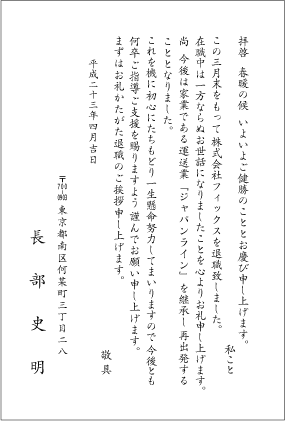 拝啓 春暖の候 いよいよご健勝のこととお慶び申し上げます。
私こと
この三月末をもって 株式会社フィックスを退職致しました。
在職中は一方ならぬお世話になりましたことを心よりお礼申し上げます。
尚 今後は家業である運送業「ジャパンライン」を継承し再出発する
こととなりました。
これを機に初心にたちもどり一生懸命努力してまいりますので今後とも
何卒ご指導ご支援を賜りますよう 謹んでお願い申し上げます。
まずはお礼かたがた退職のご挨拶申し上げます。
敬具
平成二十三年四月吉日
〒700-0913 東京都南区何某町三丁目二八
長部史明